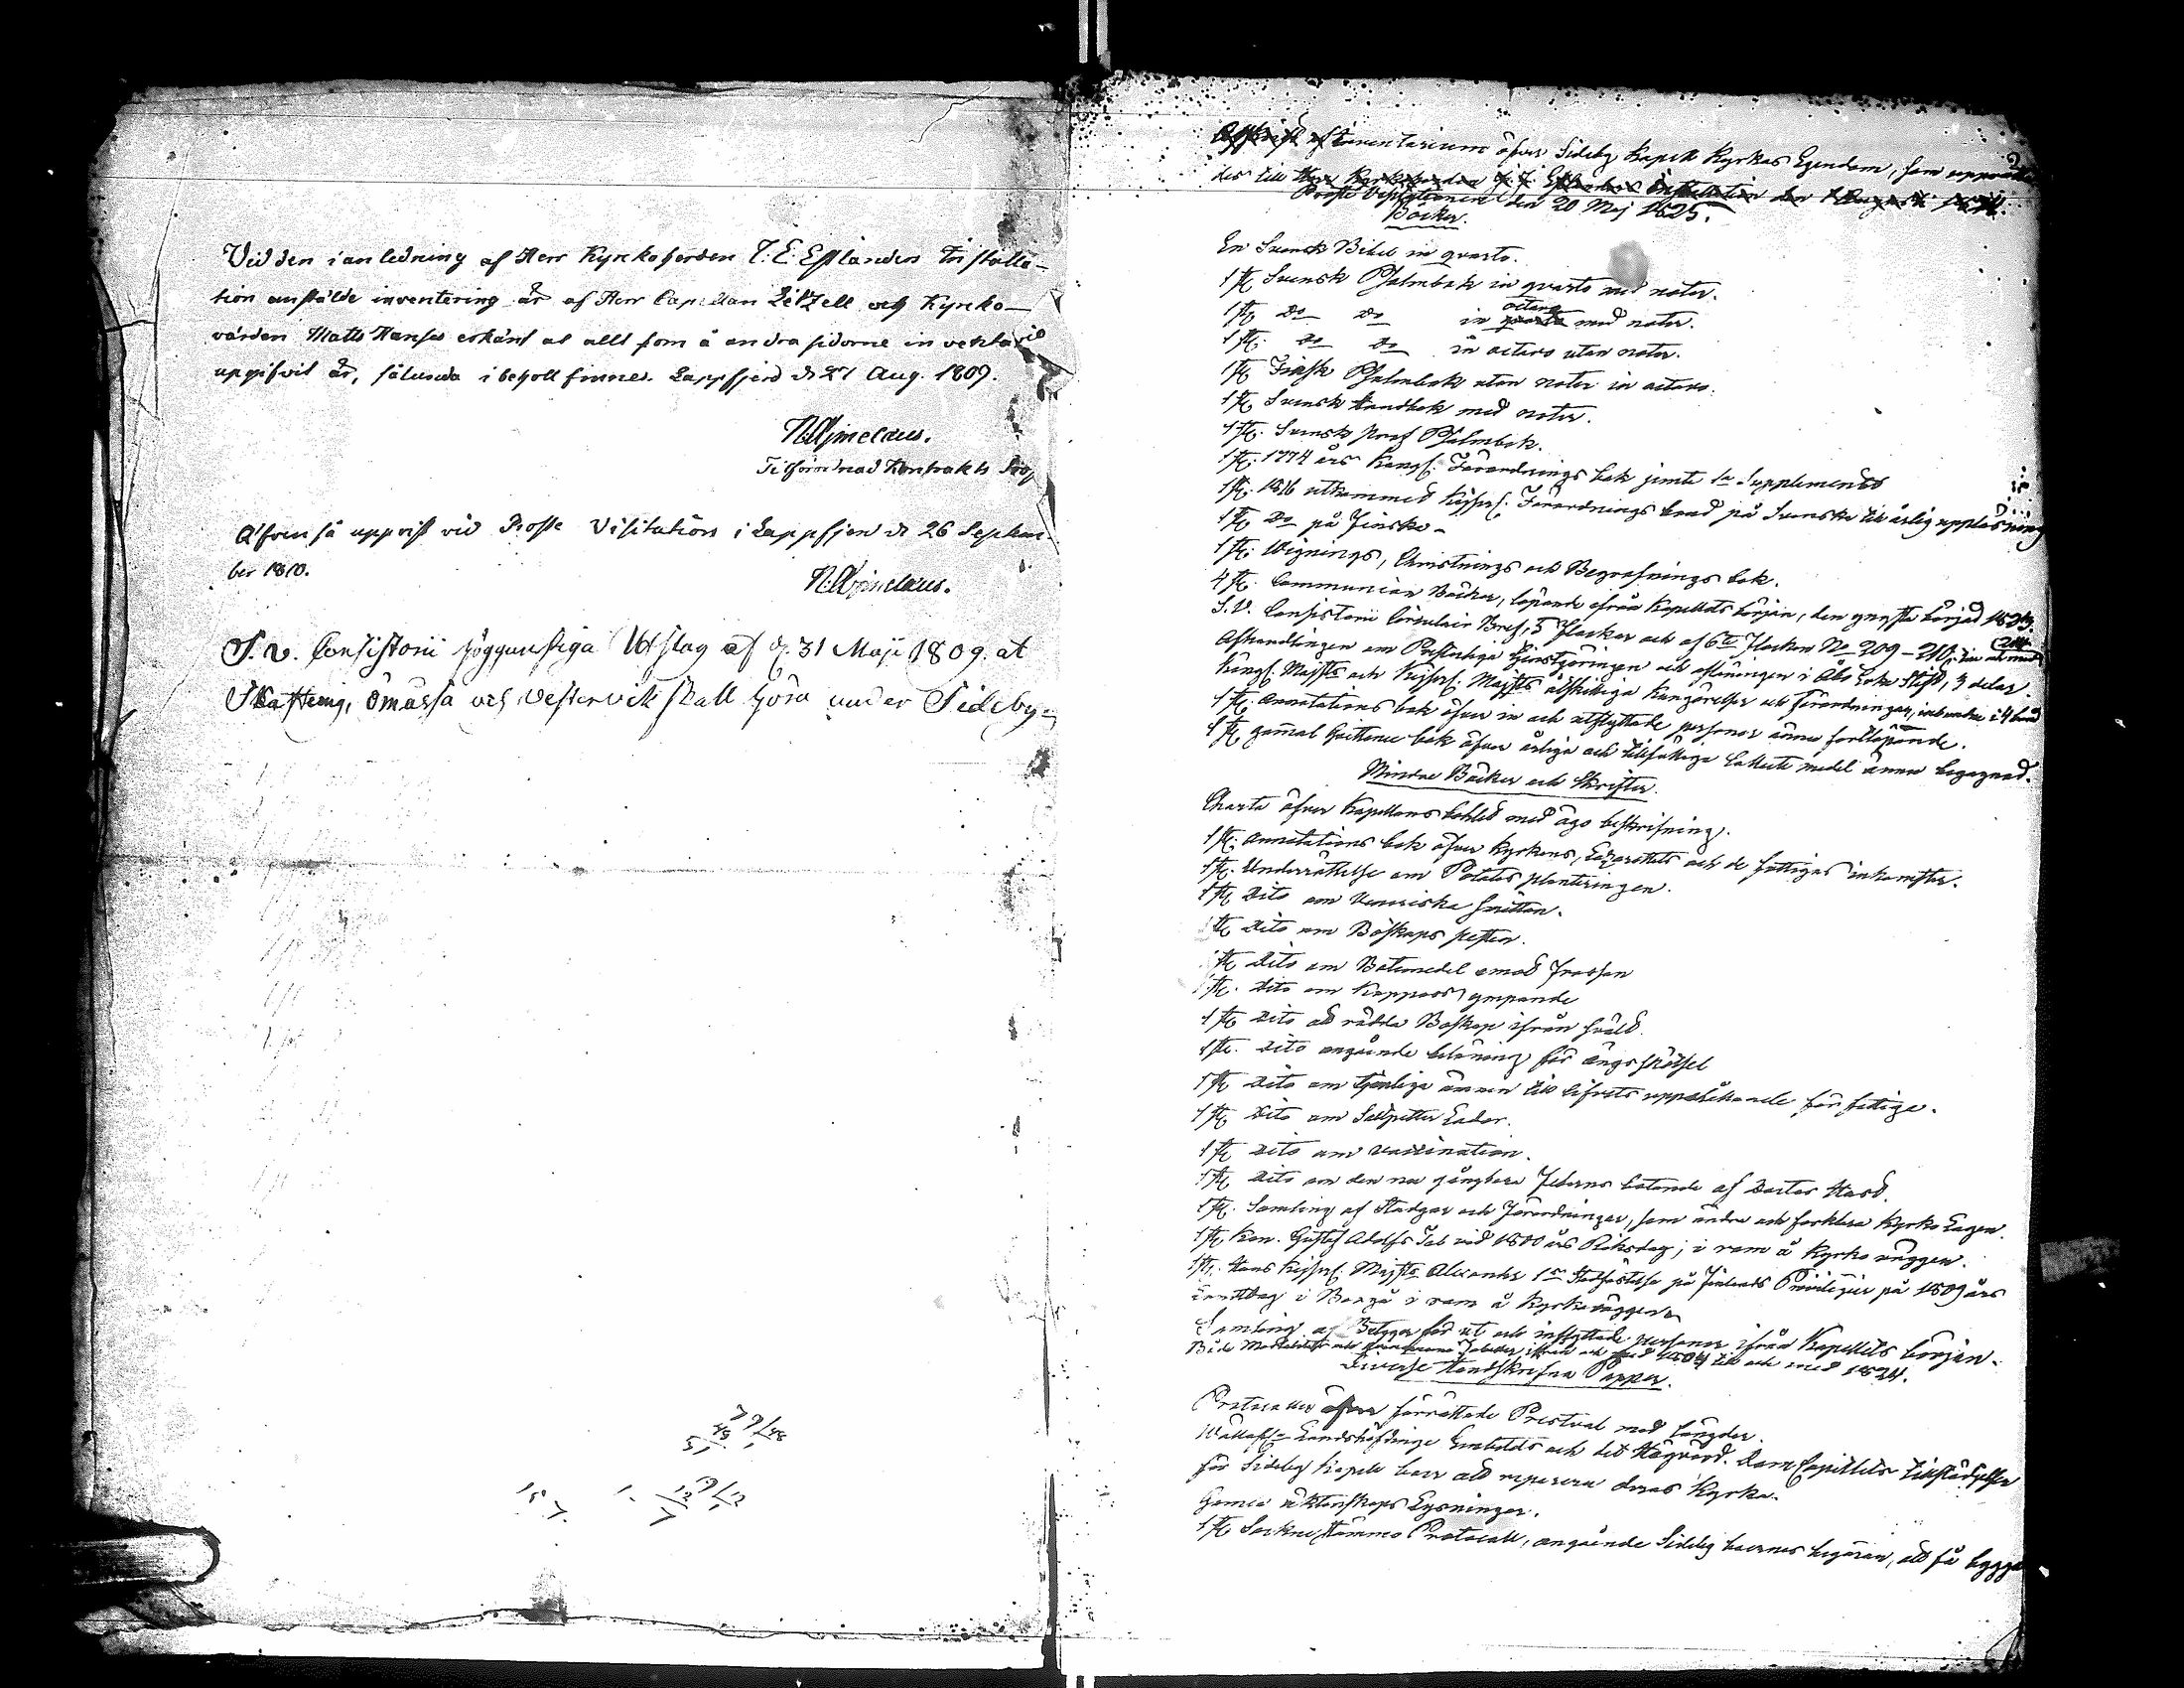 Vid den i anledning af Herr Kyrkoherden J. E. Estlanders Installa-
tion anstälde inventering är af Herr Capellan Zitzell och Kyrko-
värden Matts Hanses erkänt at allt som å andra sidorne inventario
upgifvit är, sålunda i behåll finnes. Lappfjerd d 27 Aug. 1809.
N. Aejmelaeus.
Tilförordnad Kontrakts Pro
Äfven så upvist vid Prosté Visitation i Lappfjerd d 26 Septem-
ber 1810.
N. Aejmelaeus.
S. V. Consistorii höggunstiga Utslag af d. 31 Maji 1809. at
Skaftung, Ömåssa och Vestervik skall höra under Sideby
79/48
48
51 1
15 7. 1. 19/12
12 1
7
2
Afskrift af Inventarium öfver Sideby Kapell Kyrkas Egendom, som upprätta
des till Herr Kyrkoherden J. E. Estlanders Installation den Augusti
Prosts Visitationen den 20 Maj 1825.
Böcker.
En Svensk Bibel in qvarto.
1 st. Svensk Psalmbok in qvarto med noter.
1 st. Do Do in qvarto octavo med noter.
1 st. Do Do in octavo utan noter.
1 st. Finsk Psalmbok utan noter in octavo.
1 st. Svensk Handbok med noter.
1 st. Svensk Prof Psalmbok.
1 st. 1774 års Kongl. Förordnings bok jemte 1a Supplementet
1 st. 1816 utkommed Kejserl. Förordnings band på Svenska till årlig uppläsning
1 st. Do på Finska
1 st. Wignings, Christnings och Begrafnings bok.
4 st. Communion Böcker, löpande ifrån Kapellets början, den yngsta börjad
S. V. Consistorii Circulair Bref, 5 Flockar och af 6te Flocken No 209 – 210
Afhandlingen om Presterliga Tjenstgöringen och aflöningen i Åbo Erke Stift, 3 delar.
Kongl. Majsts och Kejserl. Majsts åtskilliga Kungörelser och Förordningar, inbundne i 4 band
1 st. Annotations bok öfver in och utflyttade personer ännu fortlöpande.
1 st. gammal Quittence bok öfver årliga och tillfälliga Collecte medel ännu begagnad.
Mindre Böcker och Skrifter.
Charta öfver Kapellans bohled med ägo beskrifning.
1 st. Annotations bok öfver Kyrkans, Lazarettets och de fattigas inkomster.
1 st. Underrättelse om Potates planteringen.
1 st. Dito om Veneriska smittan.
1 st. Dito om Boskaps pesten.
1 st. Dito om Botemedel emod Frossan
1 st. Dito om Koppors ympande
1 st. Dito att rädda Boskap ifrån svält.
1 st. Dito angående belöning för ängsskötsel
1 st. Dito om tjenliga ämnen till lifvets uppehållande för fattige.
1 st. Dito om Saltpetter Lador.
1 st. Dito om vaccination.
1 st. Dito om den nu gångbara Feberns botande af Doctor Hast.
1 st. Samling af Stadgar och Förordningar, som ändra och förklara Kyrko Lagen.
1 st. Kon. Gustaf Adolfs Tal vid 1800 års Riksdag; i ram å Kyrko väggen.
1 st. Hans Kejserl. Majsts Alexander 1es Stadfästelse på Finlands Privilegier på 1809 års
Landtdag i Borgå i ram å Kyrkoväggen
Samling af Betygen för ut och inflyttade personer ifrån Kapellets början.
Både Mortalitets och Tabeller ifrån och med till och med 1824.
Diverse Handskrifna Papper.
Protocoller öfver förrättade Prestval med längder.
Landshöfdinge Embetets och det Högvörd. Dom Capitlets tillstädjelse
för Sideby Kapell boer att reparera deras Kyrka.
Gamla äktenskaps Lysningar.
1 st. Sockne stämmo Protocoll, angående Sideby boernes begäran, att få bygga